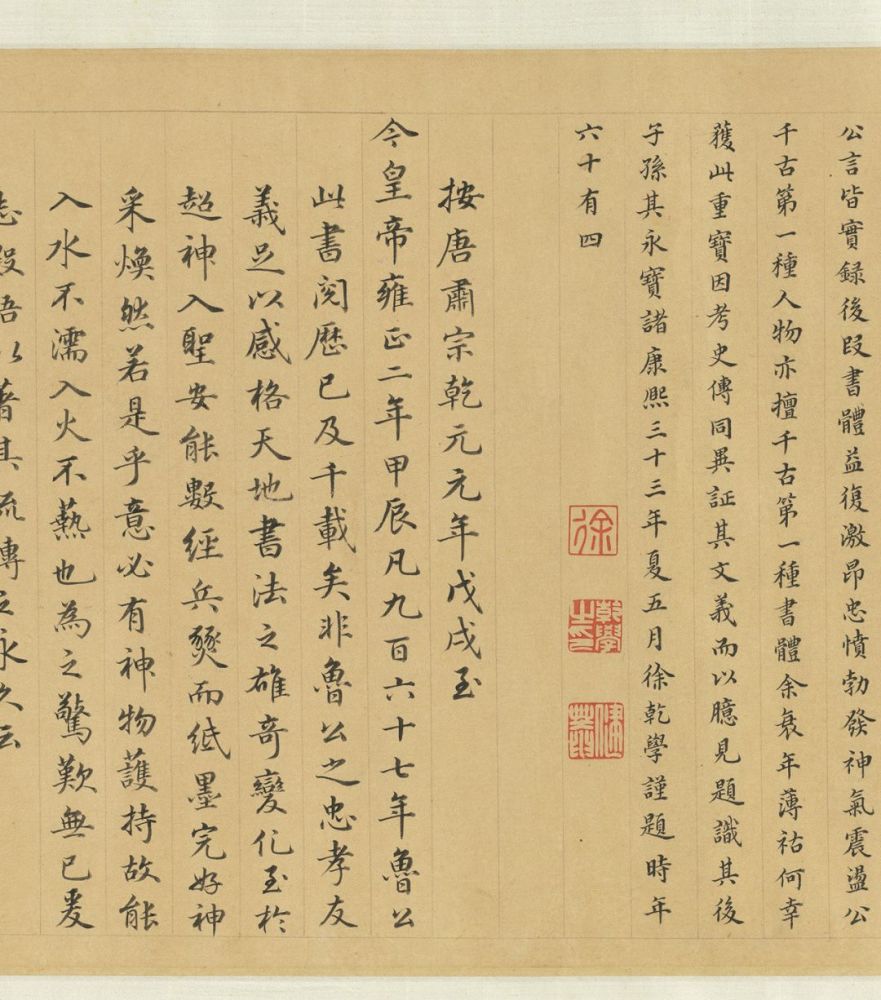 公言皆實録後段書體益復激昂忠憤勃發神氣震盪公
千古第一種人物亦擅千古第一種書體余衰年薄祜何幸
獲此重寶因考史傳同異証其文義而以臆見題識其後
子孫其永寶諸康熙三十三年夏五月徐乾學謹題時年
六十有四
徐
乾學之印
按唐肅宗乾元元年戊戌至
今皇帝雍正二年甲辰凡九百六十七年魯公
此書閲歷已及千載矣非魯公之忠孝友
義足以感格天地書法之雄奇變化至於
超神入聖安能數經兵燹而紙墨完好神
采煥然若是乎意必有神物護持故能
入水不濡入火不爇也為之驚歎無已爰
志段語以著其流傳之永久云